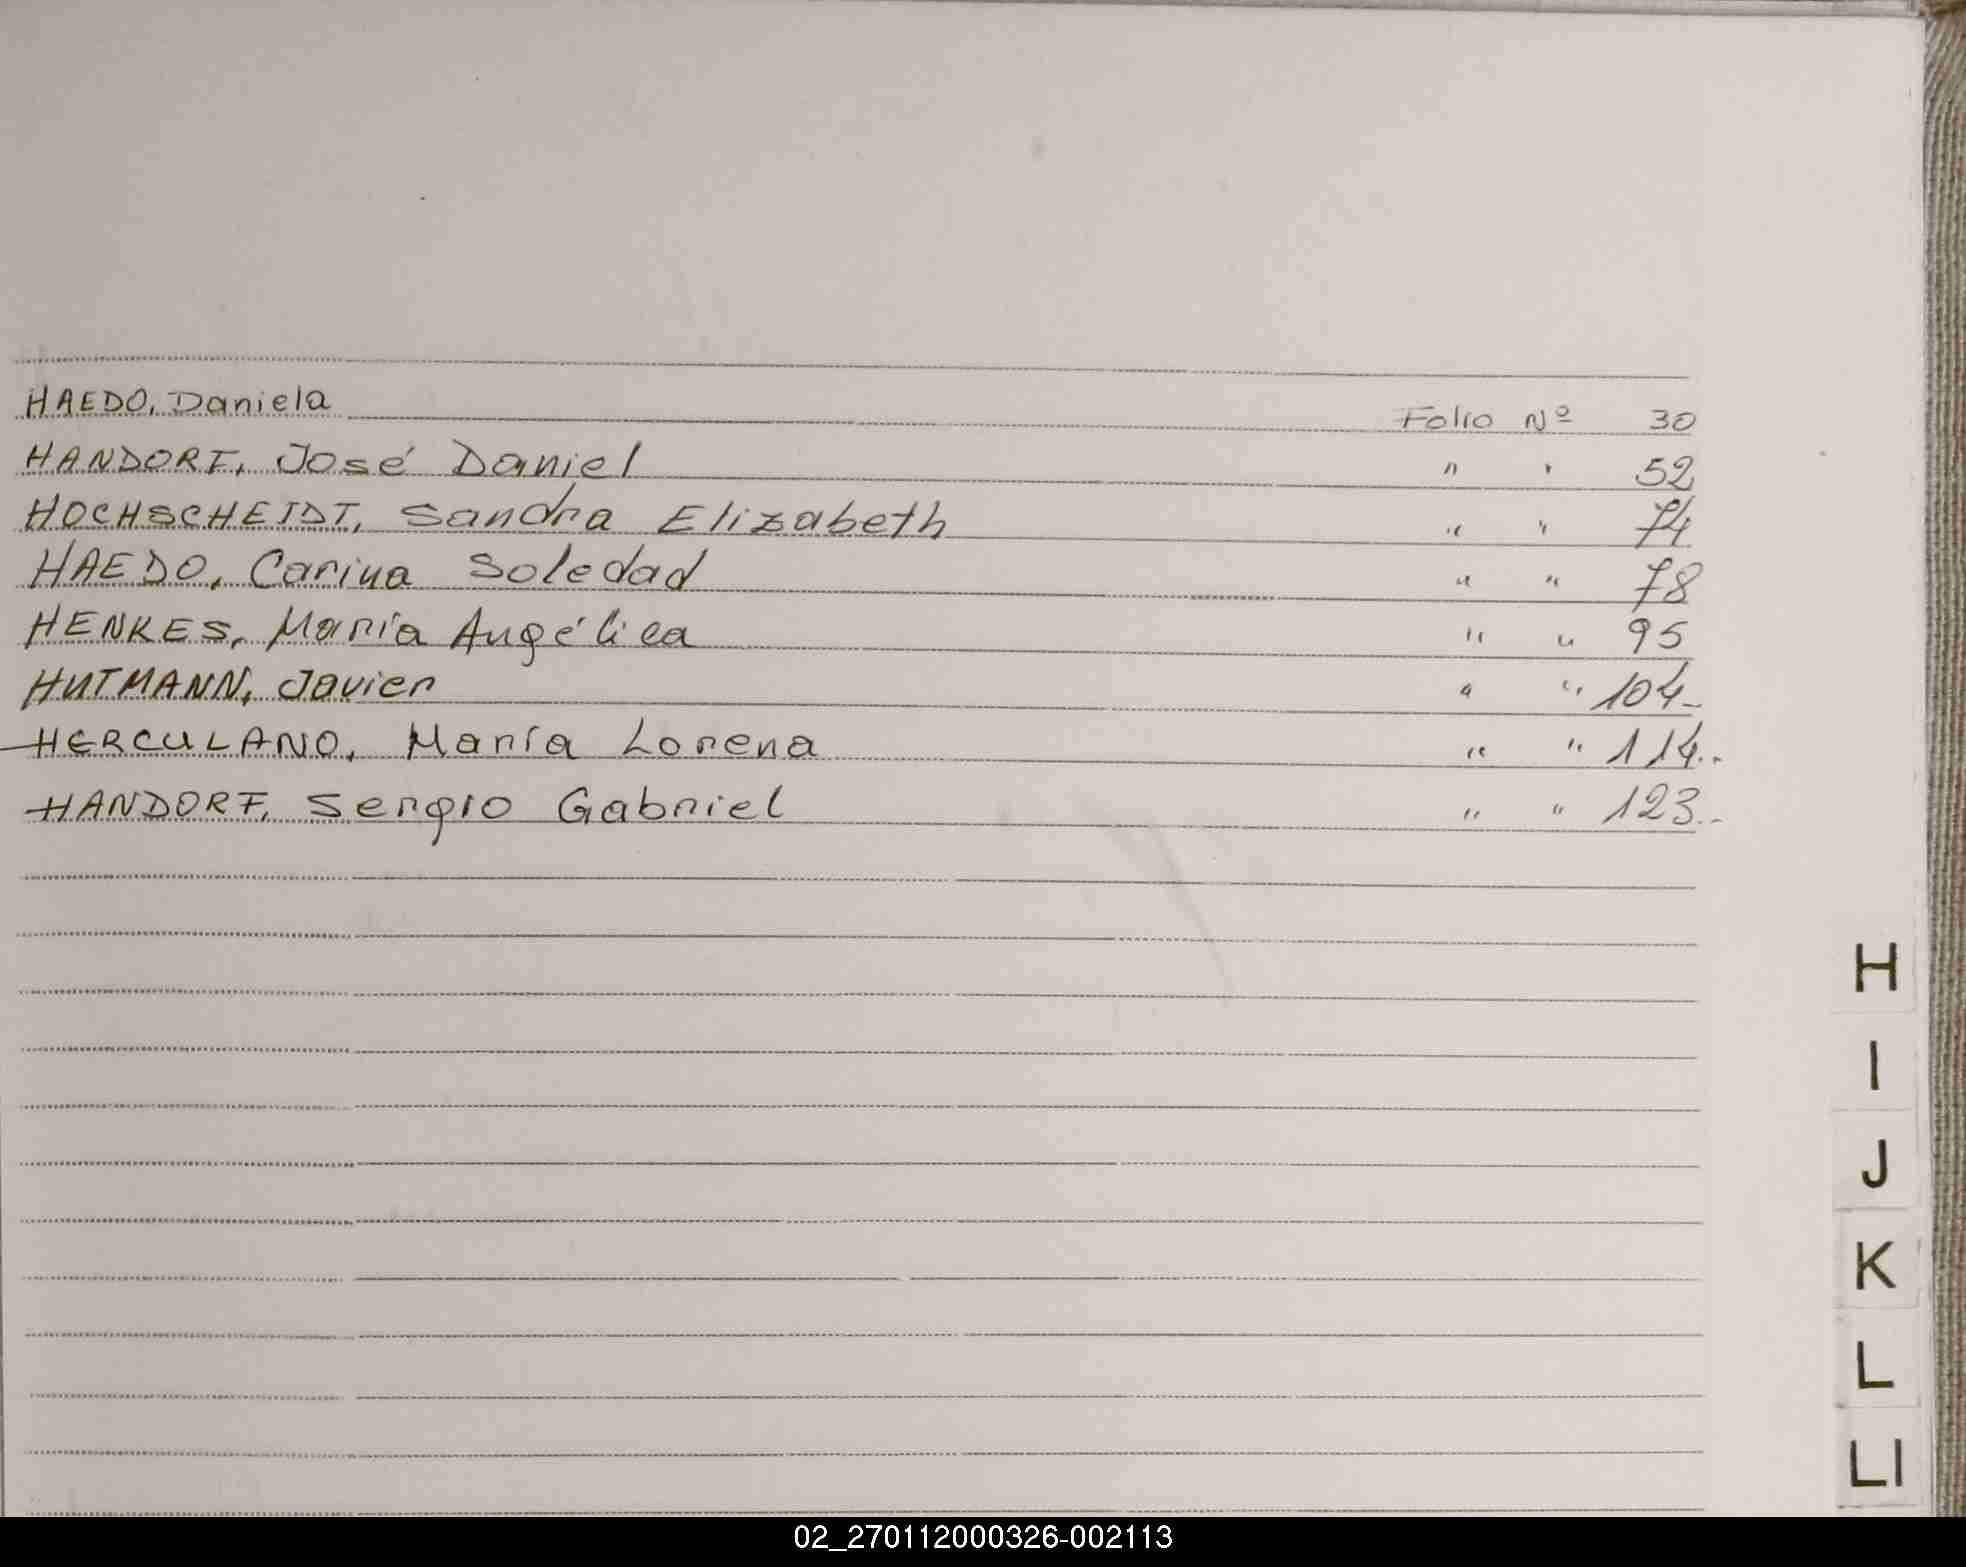 HAEDO, Daniela Folio Nº 30
HANDORF, José Daniel " " 52
HOCHSCHEIDT, Sandra Elizabeth " " 74
HAEDO, Carina Soledad " " 78
HENKES, María Angélica " " 95
HUTMANN, Javier " " 104-
HERCULANO, María Lorena " " 114..
HANDORF, Sergio Gabriel " " 123..
H
I
J
K
L
Ll
02_270112000326-002113